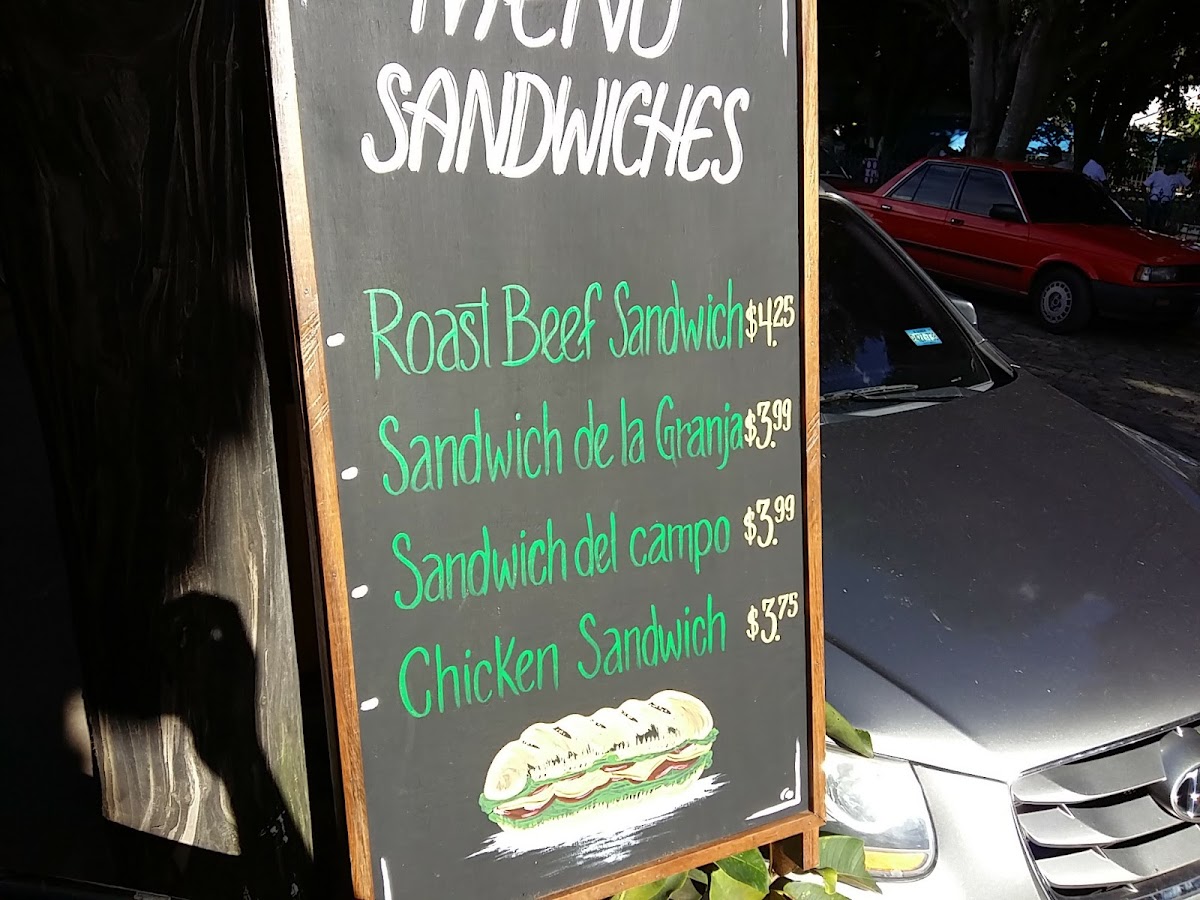 MENU
SANDWICHES
Roast Beef Sandwich $4.25
Sandwich de la Granja $3.99
Sandwich del campo $3.99
Chicken Sandwich $3.75